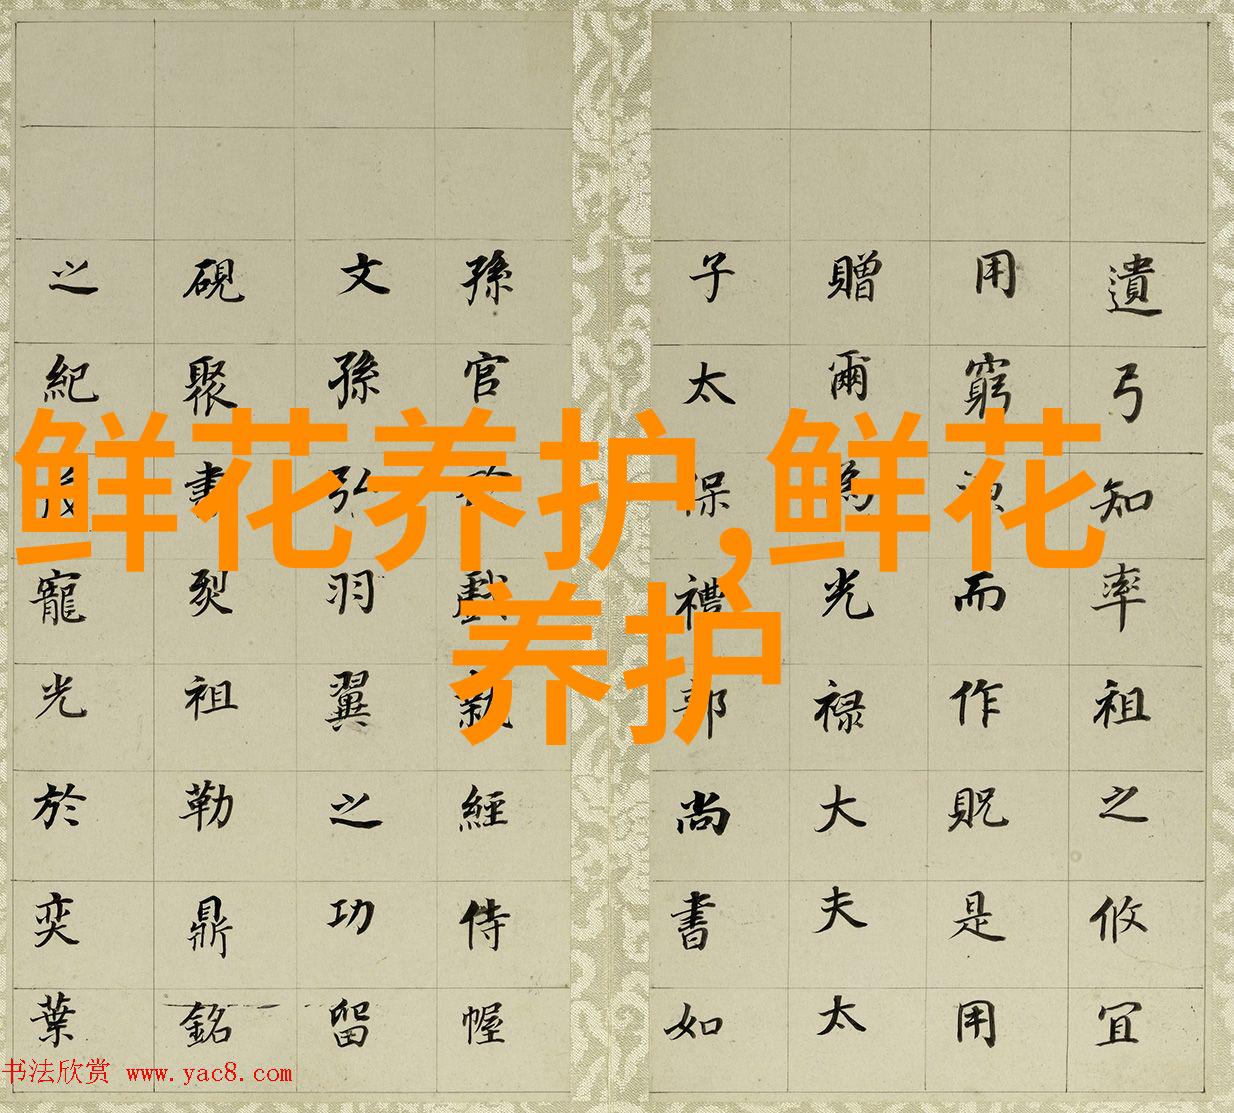 遺弓知率祖之攸宜
用窮源而作貺是用
贈爾為光禄大夫太
子太保禮部尚書如
孫官
經侍幄
文孫引羽翼之功留
硯聚書裂祖勒鼎銘
之紀
寵光於奕葉
鲜花养护,鲜花
养护
书法欣赏 www.yac8.com